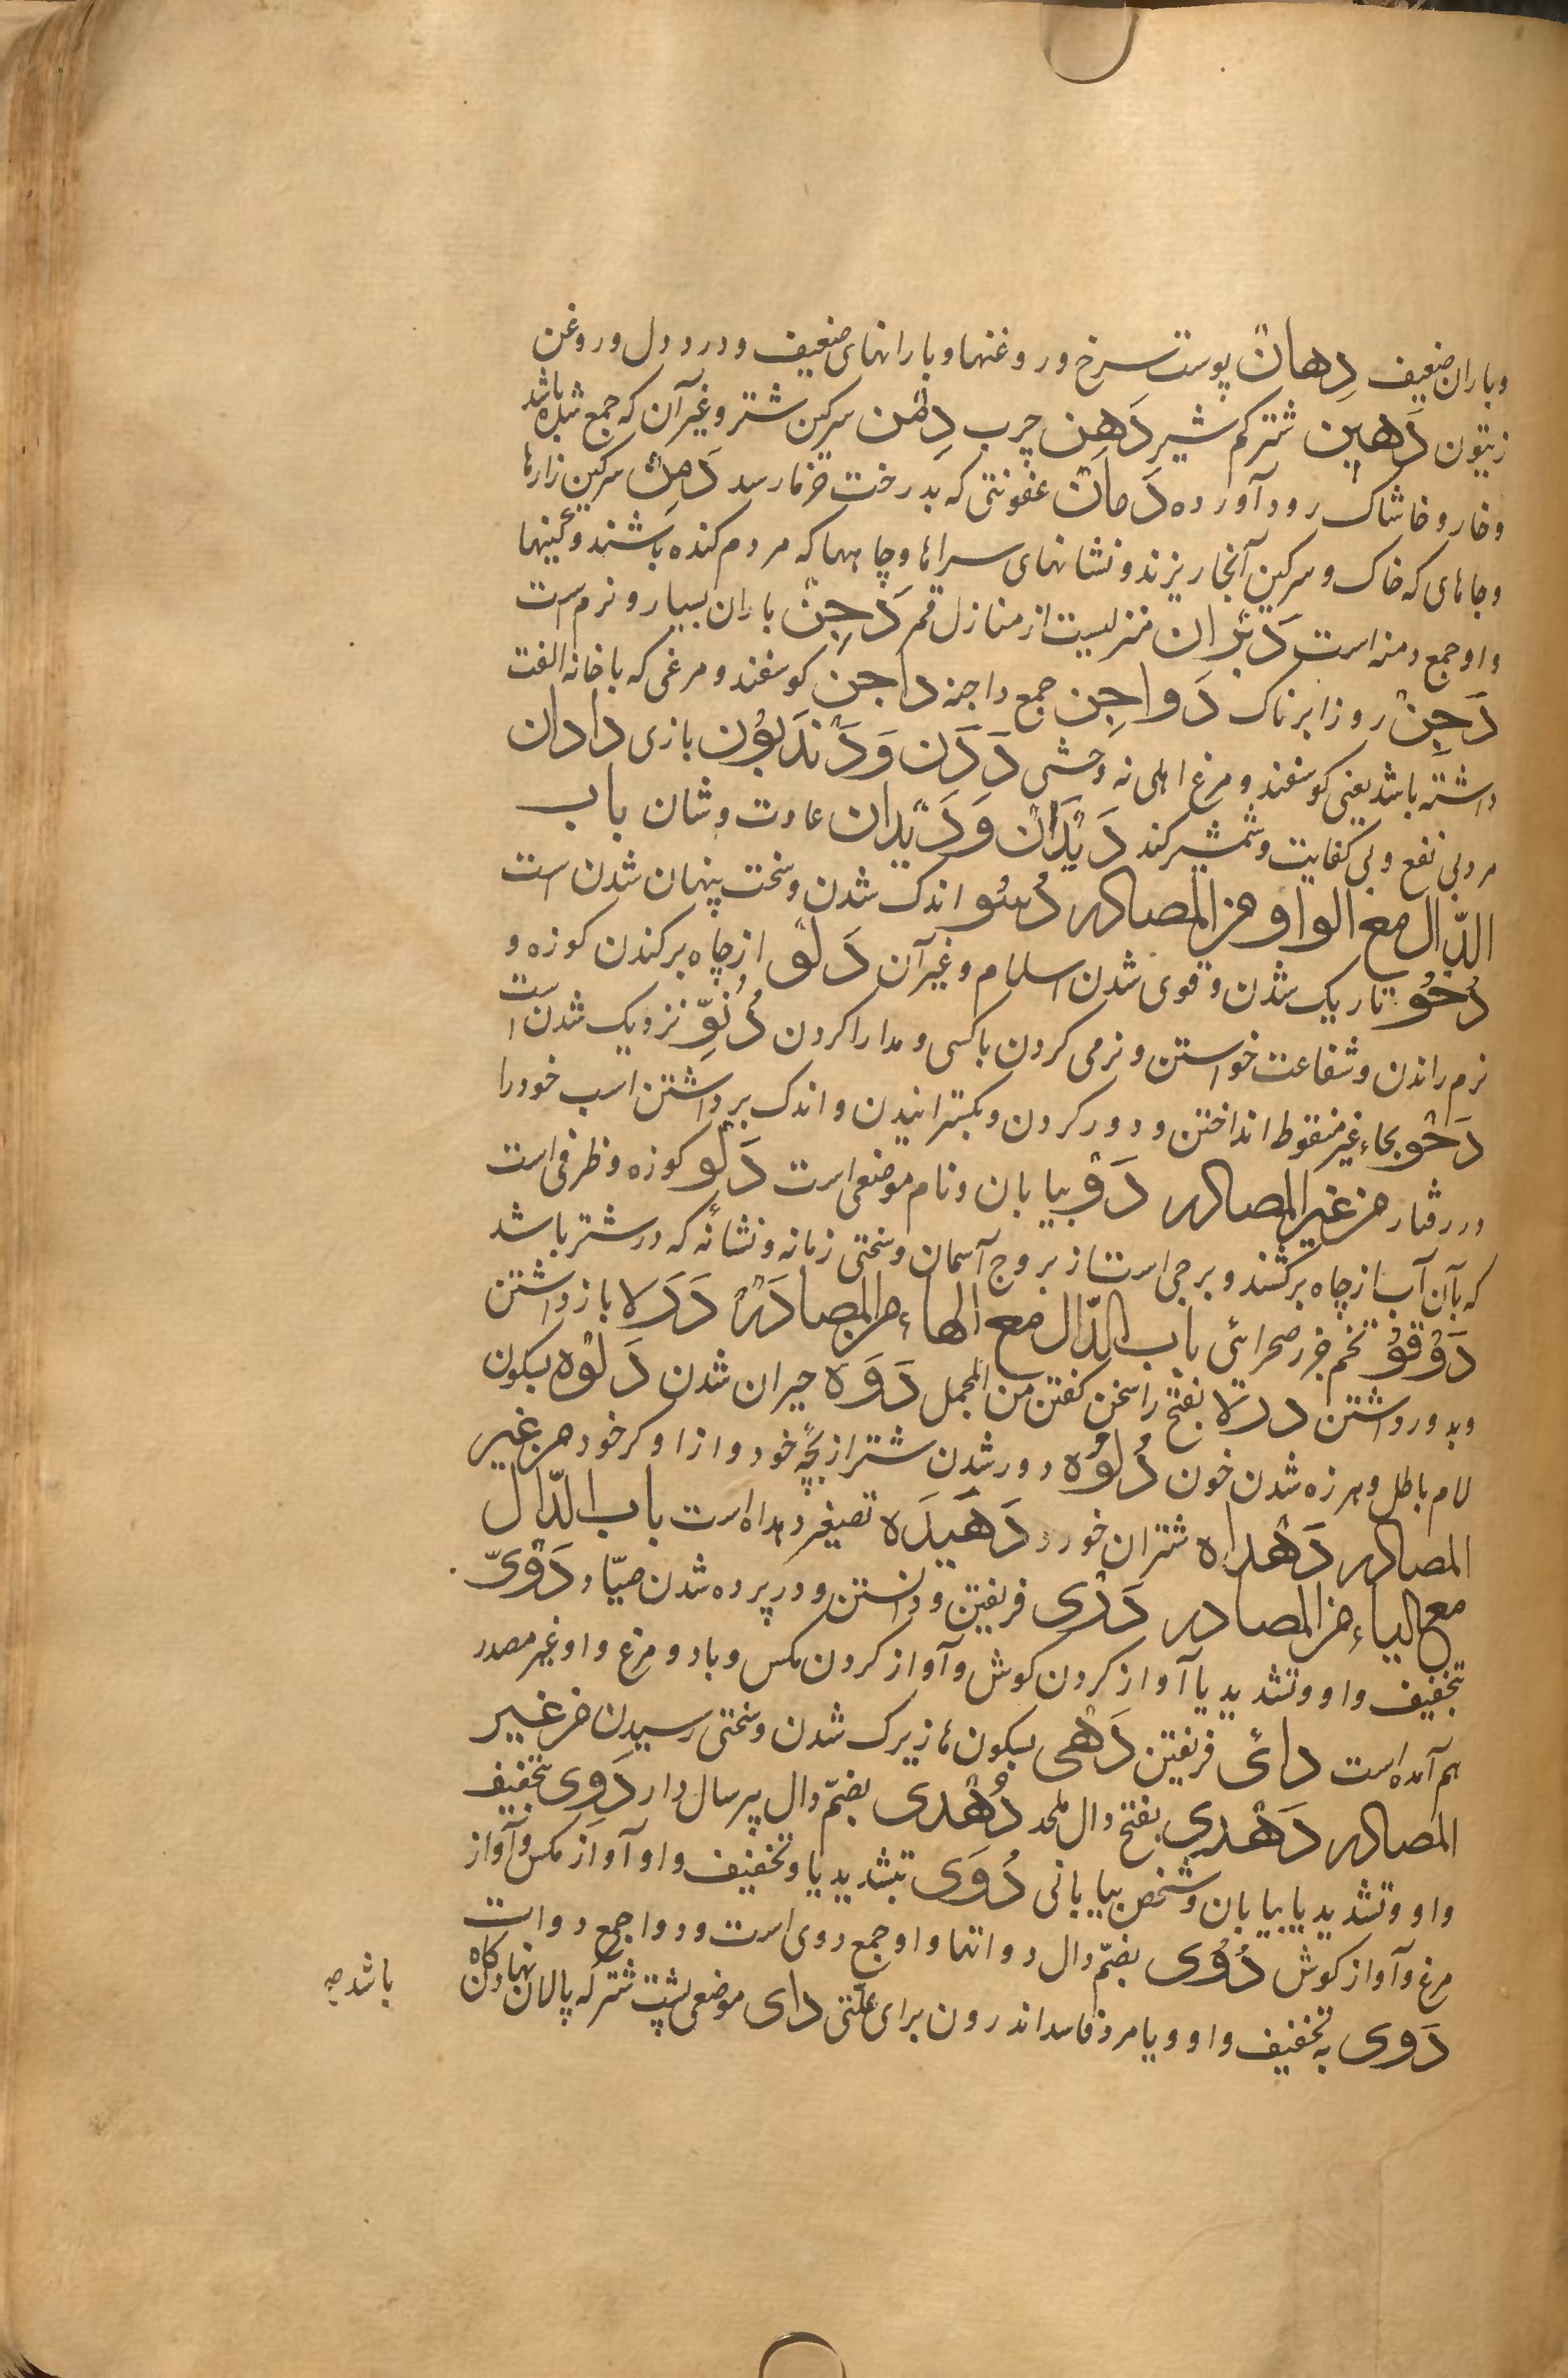 وباران ضعیف دِهان پوست سرخ وروغنها وبارانهای ضعیف ودردِ دل وروغن
زیتون دَهین شتر کم شیر دَهِن چرب دِمْن سرکین شتر وغیر آن که جمع شده باشد
وخار وخاشاک رود آورده دَمان عفونتی که بدرخت خرما رسد دَمِن سرکین زارها
وجاهای که خاک وسرکین آنجا ریزند ونشانهای سراها وچاهها که مردم کنده باشند وکینها
واو جمع دمنه است دَبَران منزلیست از منازل قمر دَجِنْ باران بسیار ونرم است
دَجِنْ روز ابرناک دَواجِن جمع داجنه داجن کوسفند ومرغی که با خانه الفت
داشته باشد یعنی کوسفند ومرغ اهلی نه وحشی دَدَن وَدَنْدَبُون بازی دادان
مرد بی نفع وبی کفایت وشمشیر کند دَیْدَان وَدَیْدِان عادت وشان باب
الدّال مع الواو من المصادر دُسُو اندک شدن وسخت پنهان شدن است
دُجُو تاریک شدن وقوی شدن اسلام وغیر آن دَلْو از چاه برکندن کوزه و
نرم راندن وشفاعت خواستن ونرمی کردن با کسی ومدارا کردن دُنُوّ نزدیک شدن است
دَحْو بحاء غیر منقوط انداختن ودور کردن وبکسترانیدن واندک برداشتن اسب خود را
در رفتار من غیر المصادر دَوّ بیابان ونام موضعی است دَلْو کوزه وظرفی است
که بآن آب از چاه برکشند وبرجی است از بروج آسمان وسختی زمانه ونشانهٔ که در شتر باشد
دَوْقُو تخم کزر صحرائی باب الدّال مع الهاء من المصادر دَرَه باز داشتن
وبدور داشتن دره بفتح را سخن کفتن من المجمل دَوَه حیران شدن دَلْوه بسکون
لام باطل وهرزه شدن خون دُلُوه دور شدن شتر از بچّهٔ خود واز اوکر خود من غیر
المصادر دَهْداه شتران خورد دَهَیْدَه تصغیر دهداه است باب الدّال
مع الیاء من المصادر دَرْی فریفتن ودانستن ودر پرده شدن صیّاد دَوْیّ
بتخفیف واو وتشدید یا آواز کردن کوش وآواز کردن مکس وباد ومرغ واو غیر مصدر
هم آمده است دائی فریفتن دَهْی بسکون ها زیرک شدن وسختی رسیدن من غیر
المصادر دَهْدی بفتح دال ملحد دُهْدی بضمّ دال پیر سال دار دَوِی بتخفیف
واو وتشدید یا بیابان وشخص بیابانی دُوَی بتشدید یا وتخفیف واو آواز مکس وآواز
مرغ وآواز کوش دُوُی بضمّ دال دواتها واو جمع دوی است ودوا جمع دوات
دَوی به تخفیف واو ویا مرد فاسد اندرون برای علّتی دای موضعی پشت شتر که پالان نهاد کاه
باشد صح